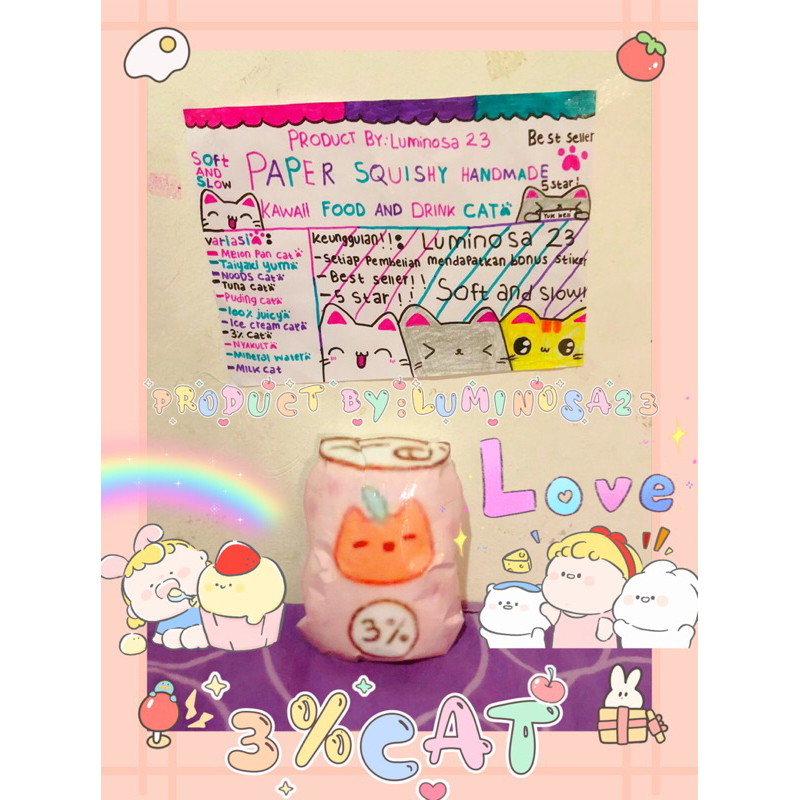 PRODUCT BY:Luminosa 23
Best seller
SOft AND SLOW
PAPER SQUISHY HANDMADE
5 Star!
KAWAII FOOD AND DRINK CAT
variasi:
- MeLon Pan cat
- Taiyaki yum
- NOODS Cat
- Tuna cat
- Puding cat
- 100% juicy
- Ice cream cat
- 3% cat
- NYAKULT
- Mineral water
- MILK Cat
keunggulan!!: Luminosa 23
- Setiap Pembelian mendapatkan bonus stiker
- Best seller!!
- 5 Star!!! Soft and slow!
PRODUCT BY:LUMINOSA23
Love
3%
3%CAT